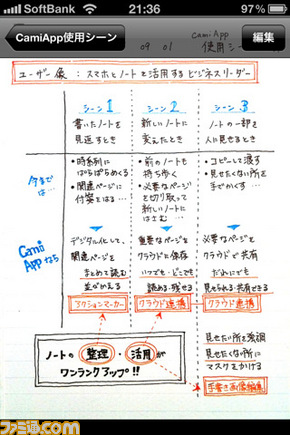 SoftBank
21:36
97%
CamiApp使用シーン
編集
09 01
CamiApp
使用シーン
ユーザー像：スマホとノートを活用するビジネスリーダー
シーン1
書いたノートを
見返すとき
シーン2
新しいノートに
変えたとき
シーン3
ノートの一部を
人に見せるとき
今までは…
・時系列に
ぱらぱらめくる
・関連ページに
付箋をはる…
・前のノートも
持ち歩く
・必要なページ
を切り取って
新しいノート
にはさむ…
・コピーして渡す
・見せたくない所を
手でかくす…
Cami
Appなら
デジタル化して、
関連ページを
まとめて読む
並べかえる
アクションマーカー
重要なページを
クラウドに保存
いつでも・どこでも
読める・残せる
クラウド連携
必要なページを
クラウドで共有
だれにでも
見せられる・共有できる
クラウド連携
見せたい所を強調
見せたくない所に
マスクをかける
手書き画像編集
ノートの整理・活用が
ワンランクアップ!!
ファミ通.com